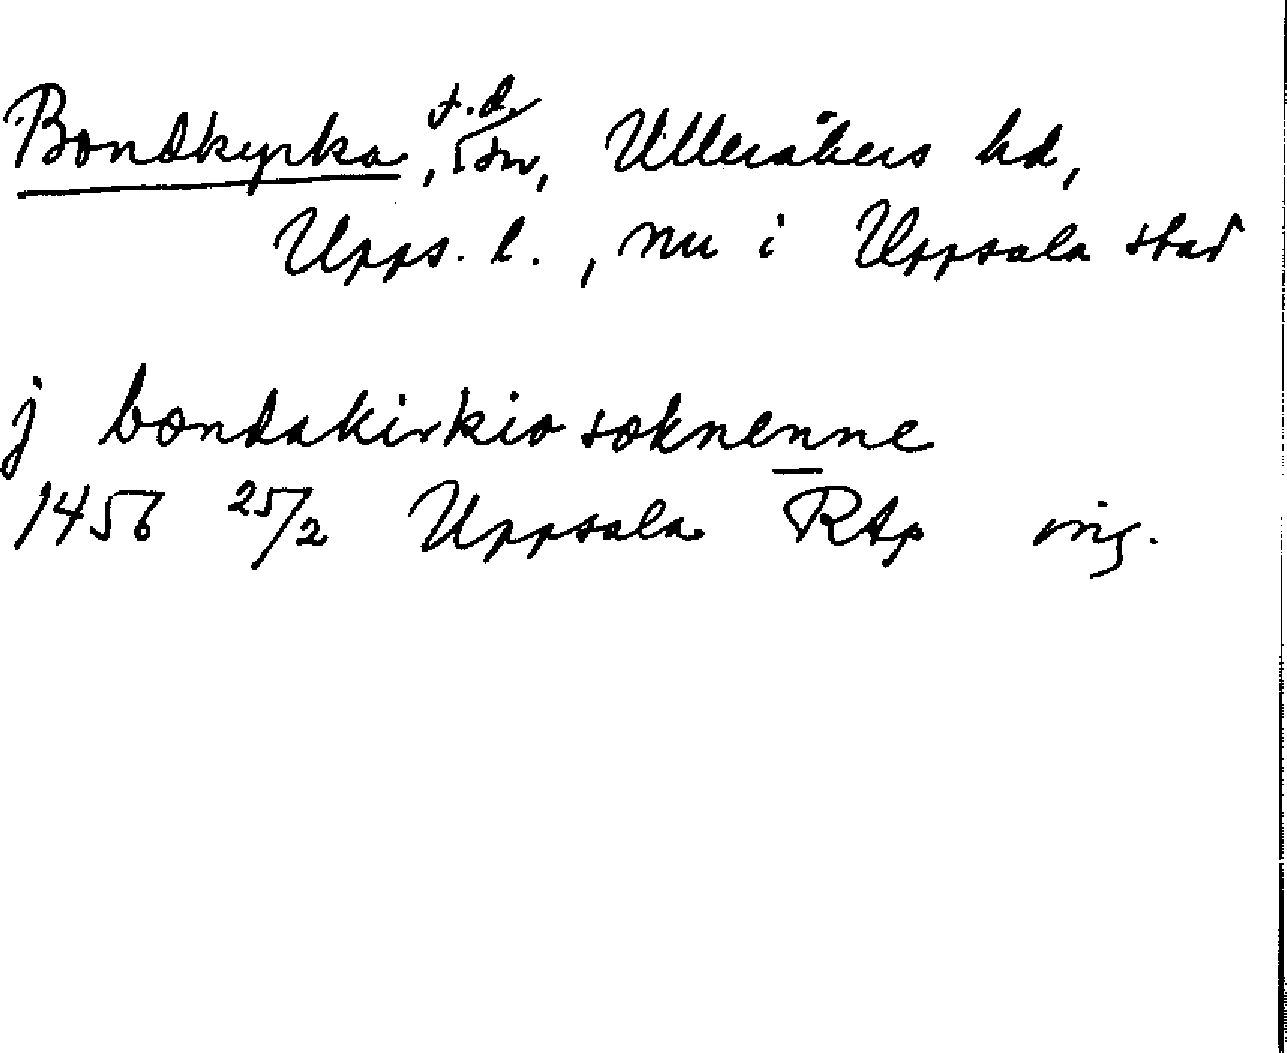 Bondkyrka, f.d. sn, Ulleråkers hd,
Upps. l., nu i Uppsala stad
j bondakirkio soknenne
1456 25/2 Uppsala RAp orig.